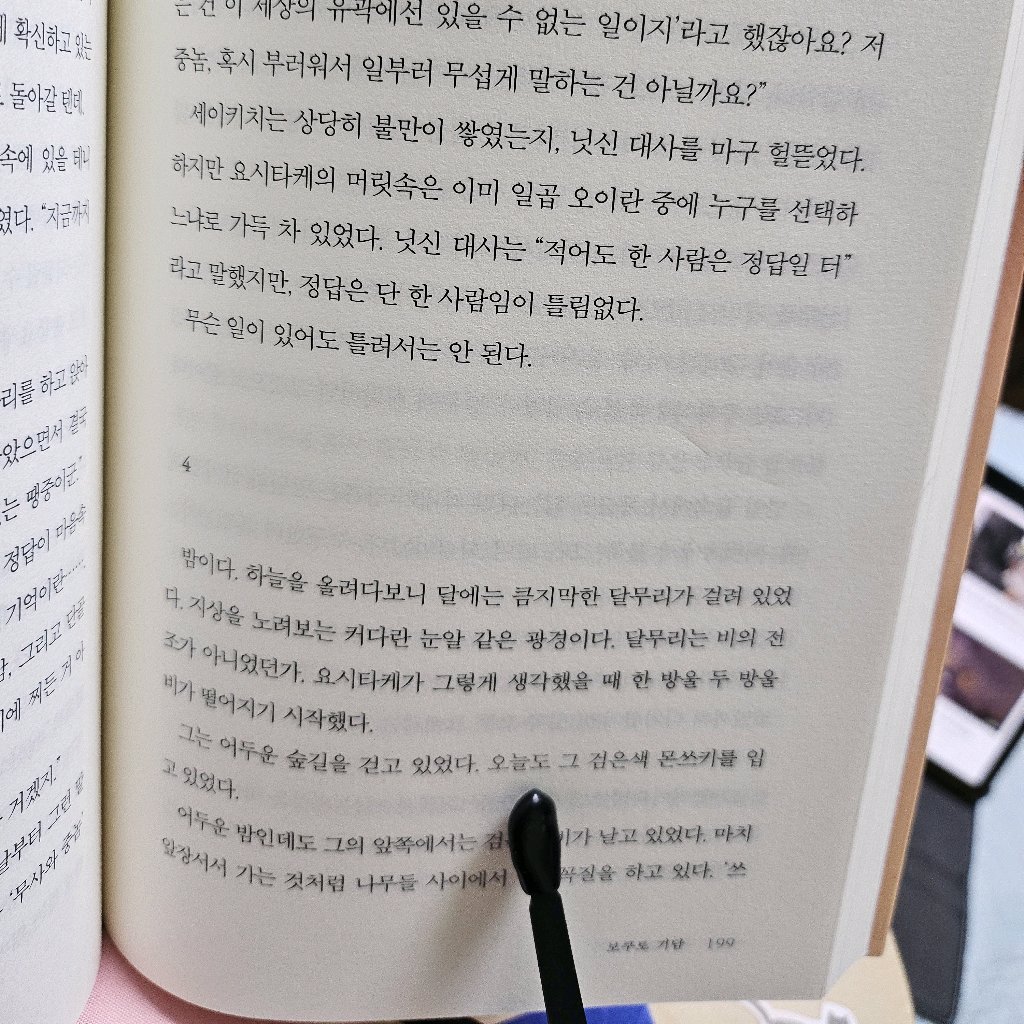 확신하고 있는
돌아갈 텐데.
속에 있을 테니
였다. “지금까지
리를 하고 앉아
았으면서 결국
는 땡중이군.”
정답이 마음속
기억이란……
그리고 단골
에 찌든 게 아
거겠지.”
날부터 그런 말
‘무사와 중놈’
은 건 이 세상의 유곽에선 있을 수 없는 일이지’라고 했잖아요? 저
중놈, 혹시 부러워서 일부러 무섭게 말하는 건 아닐까요?”
세이키치는 상당히 불만이 쌓였는지, 닛신 대사를 마구 헐뜯었다.
하지만 요시타케의 머릿속은 이미 일곱 오이란 중에 누구를 선택하
느냐로 가득 차 있었다. 닛신 대사는 “적어도 한 사람은 정답일 터”
라고 말했지만, 정답은 단 한 사람임이 틀림없다.
무슨 일이 있어도 틀려서는 안 된다.
4
밤이다. 하늘을 올려다보니 달에는 큼지막한 달무리가 걸려 있었
다. 지상을 노려보는 커다란 눈알 같은 광경이다. 달무리는 비의 전
조가 아니었던가. 요시타케가 그렇게 생각했을 때 한 방울 두 방울
비가 떨어지기 시작했다.
그는 어두운 숲길을 걷고 있었다. 오늘도 그 검은색 몬쓰키를 입
고 있었다.
어두운 밤인데도 그의 앞쪽에서는 날고 있었다. 마치
앞장서서 가는 것처럼 나무들 사이에서 하고 있다. ‘쓰
보쿠토 기담 199